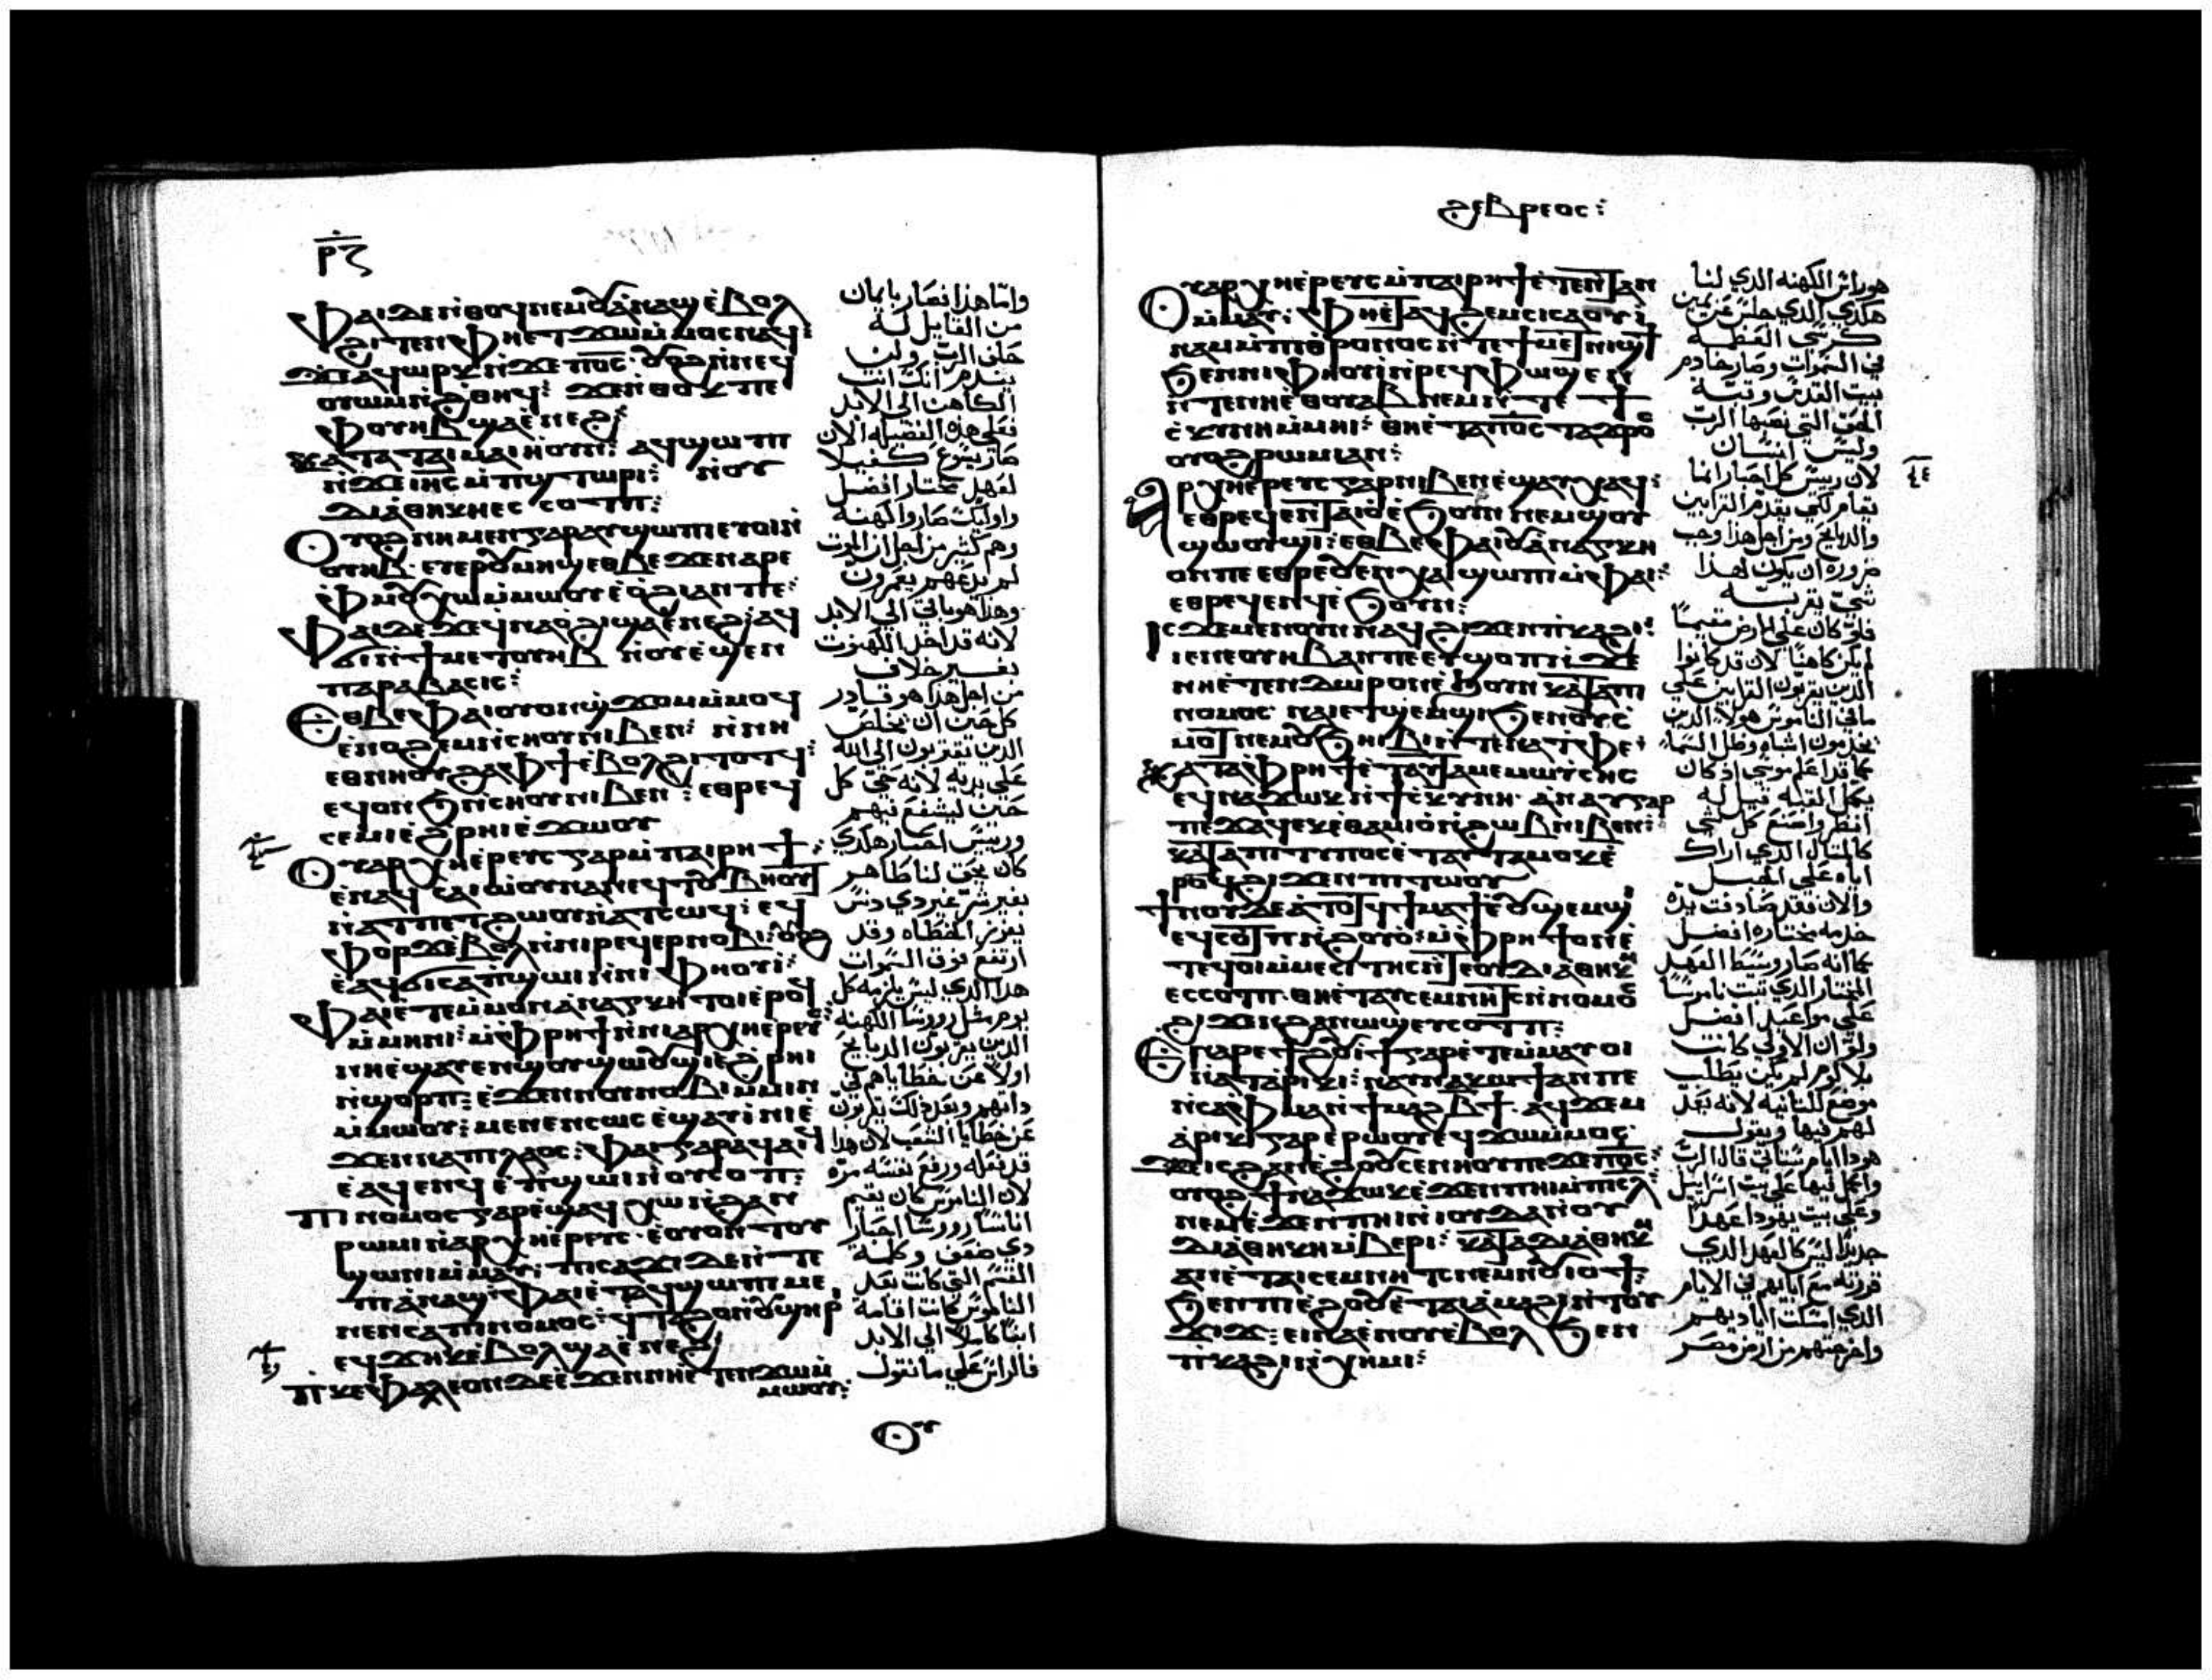 ⲣⲍ
ⲫⲁⲓ ⲇⲉ ⲛⲑⲟϥ ⲛⲉⲙ ⲟⲩⲁⲛⲁϣ ⲉⲃⲟⲗ
ϩⲓⲧⲉⲛ ⲫⲏⲉⲧϫⲱ ⲙⲙⲟⲥ ⲛⲁϥ:
ϫⲉ ⲁϥⲱⲣⲕ ⲛϫⲉ ⲡⲟⲥ ⲟⲩⲟϩ ⲛⲛⲉϥ
ⲟⲩⲱⲙ ⲛϩⲑⲏϥ: ϫⲉ ⲛⲑⲟⲕ ⲡⲉ
ⲫⲟⲩⲏⲃ ϣⲁ ⲉⲛⲉϩ:
ⲕⲁⲧⲁ ⲧⲁⲓⲙⲁⲓⲏ ⲟⲛ: ⲁϥϣⲱⲡⲓ
ⲛϫⲉ ⲓⲏⲥ ⲙⲡϣⲧⲱⲣⲓ: ⲛⲟⲩ
ⲇⲓⲁⲑⲏⲕⲏ ⲉⲥⲥⲟⲧⲡ:
ⲟⲩⲟϩ ⲛⲏ ⲙⲉⲛ ⲅⲁⲣ ⲁⲩϣⲱⲡⲓ ⲉⲩⲟⲓ ⲛ
ⲟⲩⲏⲃ ⲉⲩⲉⲣ ⲟⲩⲙⲏϣ ⲉⲑⲃⲉ ϫⲉ ⲛⲁⲣⲉ
ⲫⲙⲟⲩ ⲭⲱ ⲙⲙⲱⲟⲩ ⲉⲟϩⲓ ⲁⲛ ⲡⲉ:
ⲫⲁⲓ ⲇⲉ ϫⲉ ϥⲛⲁⲟϩⲓ ϣⲁ ⲉⲛⲉϩ ⲁϥ
ϭⲓ ⲛϯⲙⲉⲧⲟⲩⲏⲃ ⲛⲟⲩⲉϣⲉⲛ
ⲡⲁⲣⲁⲃⲁⲥⲓⲥ:
ⲉⲑⲃⲉ ⲫⲁⲓ ⲟⲩⲟⲛ ϣϫⲟⲙ ⲙⲙⲟϥ
ⲉⲛⲟϩⲉⲙ ⲛⲥⲏⲟⲩ ⲛⲓⲃⲉⲛ: ⲛⲛⲏ
ⲉⲑⲛⲏⲟⲩ ϩⲁ ⲫϯ ⲉⲃⲟⲗ ϩⲓⲧⲟⲧϥ:
ⲉϥⲟⲛϧ ⲛⲥⲏⲟⲩ ⲛⲓⲃⲉⲛ: ⲉⲑⲣⲉϥ
ⲥⲉⲙⲓ ⲉϩⲣⲏⲓ ⲉϫⲱⲟⲩ
ⲟⲩⲁⲣⲭⲏⲉⲣⲉⲩⲥ ⲅⲁⲣ ⲙⲡⲁⲓⲣⲏϯ:
ⲛⲁⲧⲡⲉⲧϩⲱⲟⲩ ⲛⲁⲧⲥⲱϥ: ⲉϥ
ⲫⲟⲣϫ ⲉⲃⲟⲗ ⲛⲛⲓⲣⲉϥⲉⲣⲛⲟⲃⲓ: ⲟⲩⲟϩ
ⲉⲁϥϭⲓⲥⲓ ⲥⲁⲡϣⲱⲓ ⲛⲛⲓⲫⲏⲟⲩⲓ:
ⲫⲁⲓ ⲉⲧⲉ ⲙⲙⲟⲛ ⲁⲛⲁⲅⲕⲏ ⲧⲟⲓ ⲉⲣⲟϥ
ⲙⲙⲏⲛⲓ: ⲙⲫⲣⲏϯ ⲛⲛⲓⲁⲣⲭⲏⲉⲣⲉⲩⲥ:
ⲛⲏ ⲉϣⲁⲩⲉⲛ ϣⲟⲩϣⲱⲟⲩϣⲓ ⲉϩⲣⲏⲓ
ⲛϣⲟⲣⲡ: ⲉϫⲉⲛ ⲛⲟⲩⲛⲟⲃⲓ ⲙⲙⲓⲛ
ⲙⲙⲱⲟⲩ: ⲙⲉⲛⲉⲛⲥⲱⲥ ⲉϣⲁⲩⲓ ⲛⲓⲉ
ϫⲉⲛ ⲛⲁ ⲡⲓⲗⲁⲟⲥ: ⲫⲁⲓ ⲅⲁⲣ ⲁϥⲁⲓϥ
ⲉⲁϥⲉⲛϥ ⲉⲡϣⲱⲓ ⲛⲟⲩⲥⲟⲡ:
ⲡⲓⲛⲟⲙⲟⲥ ⲅⲁⲣ ⲉϣⲁϥⲭⲱ ⲛϩⲁⲛ
ⲣⲱⲙⲓ ⲛⲁⲣⲭⲏⲉⲣⲉⲩⲥ· ⲉⲟⲩⲟⲛⲧⲟⲩ
ϣⲱⲛⲓ ⲙⲙⲁⲩ: ⲡⲓⲥⲁϫⲓ ⲇⲉ ⲛⲧⲉ
ⲡⲓⲁⲛⲁϣ ⲫⲁⲓ ⲉⲧⲁϥϣⲱⲡⲓ ⲙⲉ
ⲛⲉⲛⲥⲁ ⲡⲓⲛⲟⲙⲟⲥ: ϥⲧⲁϩⲟ ⲛⲟⲩϣⲏⲣ
ⲉϥϫⲏⲕ ⲉⲃⲟⲗ ϣⲁ ⲉⲛⲉϩ:
ⲡⲓⲕⲉⲫⲁⲗⲉⲟⲛ ⲇⲉ ⲉϫⲉⲛ ⲛⲏ ⲉⲧⲉⲛϫⲱ ⲙ
ⲙⲙⲱⲟⲩ:
ⲟⲩ
واما هذا فصار بايمان
من القايل له
حلف الرب ولن
يندم انك انت
الكاهن الي الابد
فعلي هذه الفضيله الان
صار يسوع كفيلا
لعهد مختار افضل
واوليك صاروا كهنة
وهم كثير من اجل ان الموت
لم يدعهم يعمرون
وهذا هو باق الي الابد
لانه قد اخذ الكهنوت
بغير خلاف
من اجل هذا هو قادر
كل حين ان يخلص
الذين يتقربون الي الله
علي يديه لانه حي كل
حين ليشفع فيهم
ورييس احبار هكذي
كان يحق لنا طاهر
بغير شر غير ذي دنس
بعزيز الخطاه وقد
ارتفع فوق السموات
هذا الذي ليس يلزمه كل
يوم مثل روسا الكهنة
الذين يقربون الذبايح
اولا عن خطاياهم في
ذاتهم وبعد ذلك يقربون
عن خطايا الشعب لان هذا
قد فعله ورفع نفسه مرة
لان الناموس كان يقيم
اناسا روسا احبار
ذي ضعف وكلمة
القسم التي كانت بعد
الناموس كانت اقامة
ابنا كاملا الي الابد
فالراس علي ما نقول
ϩⲉⲃⲣⲉⲟⲥ:
ⲟⲩⲁⲣⲭⲏⲉⲣⲉⲩⲥ ⲙⲡⲁⲓⲣⲏϯ ⲉⲧⲉⲛⲧⲁⲛ
ⲙⲙⲁⲩ: ⲫⲏ ⲉⲧⲁϥϩⲉⲙⲥⲓ ⲥⲁⲟⲩⲓ
ⲛⲁⲙ ⲙⲡⲓⲑⲣⲟⲛⲟⲥ ⲛⲧⲉ ϯⲙⲉⲧⲛⲓϣϯ
ϧⲉⲛ ⲛⲓⲫⲏⲟⲩⲓ ⲛⲣⲉϥⲫⲱϣⲉⲛ
ⲛⲧⲉ ⲛⲏ ⲉⲑⲟⲩⲁⲃ ⲛⲉⲙ ⲛⲧⲉ ϯ
ⲥⲕⲩⲛⲏ ⲙⲙⲏⲓ: ⲑⲏ ⲉⲧⲁ ⲡⲟⲥ ⲧⲁϫⲣⲟⲥ
ⲟⲩⲟϩ ⲣⲱⲙⲓ ⲁⲛ:
ⲁⲣⲭⲏⲉⲣⲉⲩⲥ ⲅⲁⲣ ⲛⲓⲃⲉⲛ ⲉϣⲁⲩⲭⲁϥ:
ⲉⲑⲣⲉϥⲉⲛ ⲧⲁⲓⲟ ⲉϧⲟⲩⲛ ⲛⲉⲙ ϣⲟⲩ
ϣⲱⲟⲩϣⲓ: ⲉⲑⲃⲉ ⲫⲁⲓ ⲟⲩⲁⲛⲁⲅⲕⲏ
ⲟⲛ ⲡⲉ ⲉⲑⲣⲉ ⲟⲩⲉⲛⲭⲁⲓ ϣⲱⲡⲓ ⲙⲫⲁⲓ:
ⲉⲑⲣⲉϥⲉⲛϥ ⲉϧⲟⲩⲛ:
ⲓⲥϫⲉ ⲙⲉⲛ ⲟⲩⲛ ⲛⲁϥϩⲓϫⲉⲛ ⲡⲕⲁϩⲓ:
ⲓⲉ ⲛⲉ ⲟⲩⲏⲃ ⲁⲛ ⲡⲉ ⲉⲩϣⲟⲡ ⲛϫⲉ
ⲛⲏ ⲉⲧⲉⲛ ⲇⲱⲣⲟⲛ ⲉϧⲟⲩⲛ ⲕⲁⲧⲁ ⲡⲓ
ⲛⲟⲙⲟⲥ· ⲛⲁⲓ ⲉⲧϣⲉⲙϣⲓ ϧⲉⲛ ⲟⲩⲥ
ⲙⲟⲧ ⲛⲉⲙ ⲟⲩϧⲏⲓⲃⲓ ⲛⲧⲉ ⲛⲁ ⲧⲫⲉ:
ⲕⲁⲧⲁ ⲫⲣⲏϯ ⲉⲧⲁⲩⲧⲁⲙⲉ ⲙⲱⲩⲥⲏⲥ
ⲉϥⲛⲁϫⲱⲕ ⲛϯⲥⲕⲩⲛⲏ· ⲁⲛⲁⲩ ⲅⲁⲣ
ⲡⲉϫⲁϥ ⲉⲕⲉⲑⲁⲙⲓⲟ ⲛϩⲱⲃ ⲛⲓⲃⲉⲛ:
ⲕⲁⲧⲁ ⲡⲓⲧⲩⲡⲟⲥ ⲉⲧⲁⲩⲧⲁⲙⲟⲕ ⲉ
ⲣⲟϥ ϩⲓϫⲉⲛ ⲡⲓⲧⲱⲟⲩ
ϯⲛⲟⲩ ⲇⲉ ⲁϥϯⲙⲁϯ ⲉⲟⲩϣⲉⲙϣⲓ
ⲉϥⲥⲟⲧⲡ ⲛϩⲟⲩⲟ: ⲙⲫⲣⲏϯ ⲟⲛ ⲉ
ⲧⲉϥⲟⲓ ⲙⲙⲉⲥⲓⲧⲏⲥ ⲛⲧⲉ ⲟⲩⲇⲓⲁⲑⲏⲕⲏ
ⲉⲥⲥⲟⲧⲡ· ⲑⲏ ⲉⲧⲁⲩⲥⲉⲙⲛⲏⲧⲥ ⲛⲛⲟⲙⲟⲥ
ϩⲓϫⲉⲛ ϩⲁⲛⲱϣ ⲉⲩⲥⲟⲧⲡ:
ⲉⲛⲁⲣⲉ ϯϩⲟⲩⲓϯ ⲅⲁⲣ ⲉⲧⲉⲙⲙⲁⲩ ⲟⲓ
ⲛⲁⲧⲁⲣⲓⲕⲓ: ⲛⲁⲩⲛⲁⲕⲱϯ ⲁⲛ ⲡⲉ
ⲛⲥⲁ ⲫⲙⲁ ⲛϯⲙⲁϩⲃϯ· ⲁϥϫⲉⲙ
ⲁⲣⲓⲕⲓ ⲅⲁⲣ ⲉⲣⲱⲟⲩ ⲉϥϫⲱ ⲙⲙⲟⲥ·
ϫⲉ ⲓⲥ ϩⲁⲛⲉϩⲟⲟⲩ ⲥⲉⲛⲏⲟⲩ ⲡⲉϫⲉ ⲡⲟⲥ:
ⲟⲩⲟϩ ϯⲛⲁϫⲱⲕ ⲉϫⲉⲛ ⲡⲏⲓ ⲙⲡⲓⲥⲗ
ⲛⲉⲙ ⲉϫⲉⲛ ⲡⲏⲓ ⲛⲓⲟⲩⲇⲁ ⲛⲟⲩ
ⲇⲓⲁⲑⲏⲕⲏ ⲙⲃⲉⲣⲓ: ⲕⲁⲧⲁ ϯⲇⲓⲁⲑⲏⲕⲏ
ⲁⲛ ⲉⲧⲁⲓⲥⲉⲙⲛⲏⲧⲥ ⲛⲉⲙ ⲛⲟⲩⲓⲟϯ:
ϧⲉⲛ ⲡⲓⲉϩⲟⲟⲩ ⲉⲧⲁⲓⲁⲙⲁϩⲓ ⲛⲧⲟⲩ
ϫⲓϫ: ⲉⲓⲛⲁⲉⲛⲟⲩ ⲉⲃⲟⲗ ϧⲉⲛ
ⲡⲕⲁϩⲓ ⲛⲭⲏⲙⲓ:
هو راس الكهنه الذي لنا
هكذي الذي جلس عن يمين
كرسي العظمة
في السموات وصار خادم
بيت القدس وقبة
الحق التي نصبها الرب
وليس انسان
لان رييس كل احبار انما
يقام لكي يقدم القرابين
والذبايح ومن اجل هذا وجب
ضرورة ان يكون لهذا
شي يقربه
فلو كان علي الارض مقيما
لم يكن كاهنا لان قد كانوا
الذين يقربون القرابين علي
ما في الناموس هولا الذين
يخدمون اشباه وظل السما
كما قد اعلم موسي اذ كان
يكمل القبة قيل له
انظر واصنع كل شي
كالمثال الذي اراك
اياه علي الجبل
والان فقد صادفت يده
خدمه مختاره افضل
كما انه صار وسيط العهد
المختار الذي ثبت ناموسا
علي مواعيد افضل
ولو ان الاولي كانت
بلا لوم لم يكن يطلب
موضع للثانيه لانه بعذل
لهم فيها ويقول
هوذا ايام ستاتي قال الرب
واكمل فيها علي بيت اسراييل
وعلي بيت يهوذا عهدا
جديدا ليس كالعهد الذي
قررته مع ابايهم في الايام
الذي امسكت اياديهم
واخرجتهم من ارض مصر